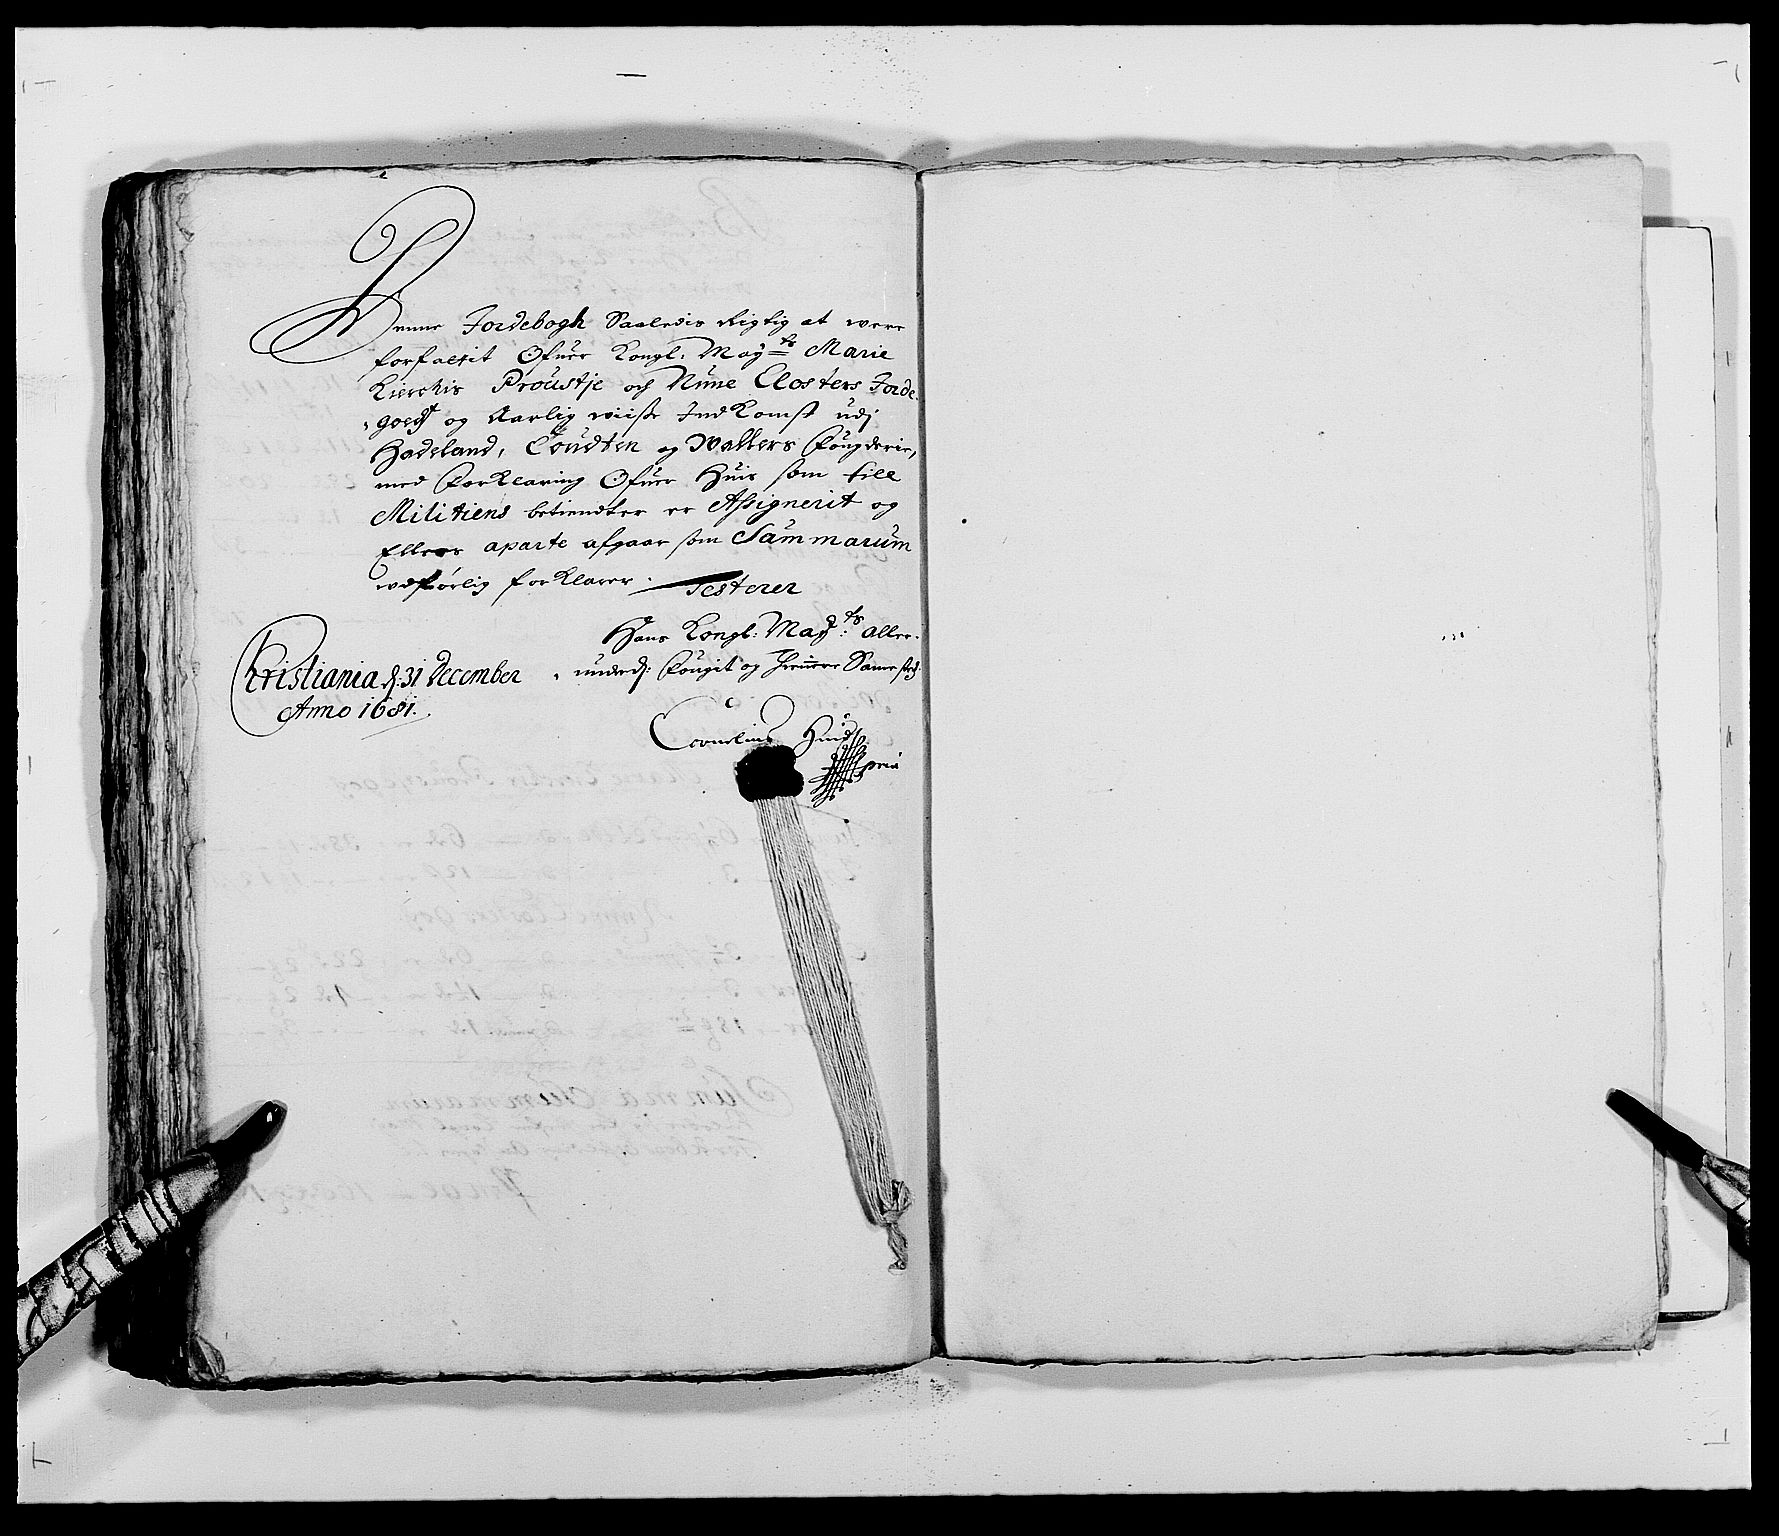 Denne Jordebogh Saaledis Rigtig at were
forfattit Ofuer Kongl: May:ts Marie
Kierchis Proustje och Nune Closters Jorde
goeds og Aarlig wiisse IndKomst udj
Hadeland, Toudten og Walders Fougderie,
med forKlaring Ofuer Huis som till
Militiens betiendter er Assignerit og
Ellers aparte afgaar som Summarum
wdførlig forKlarer. Testerer
Hans Kongl: May:ts aller-
underd: Fougit og Thienere Sammesteds
Christiania d: 31 December
Anno 1681.
Cornelius